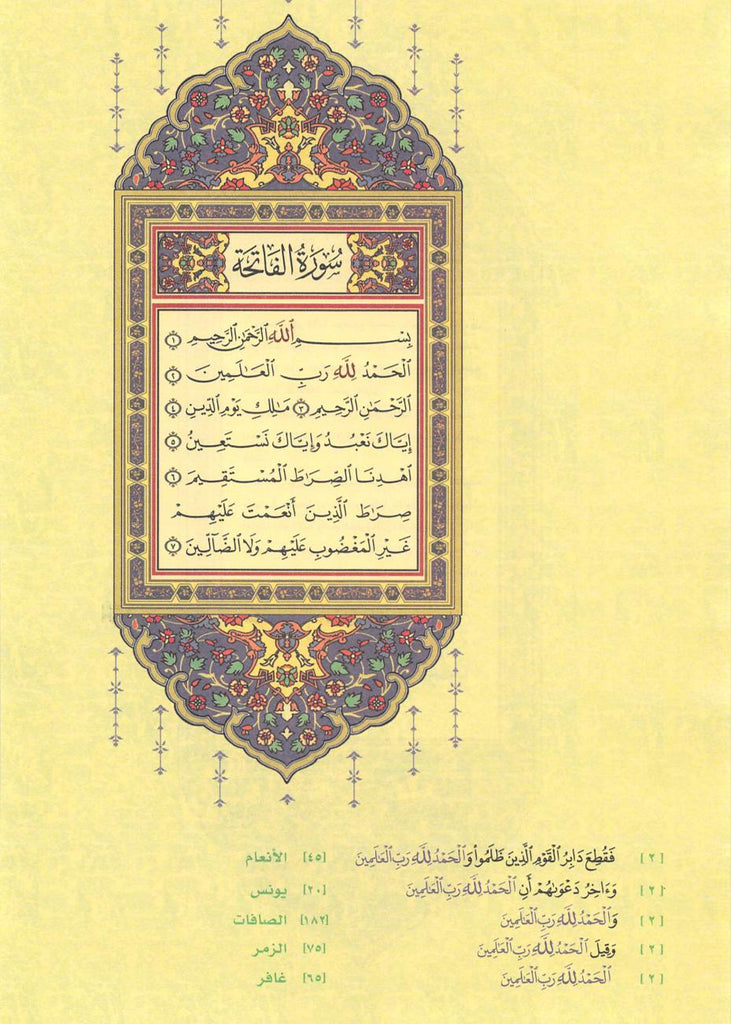 سُورَةُ الفَاتِحَة
بِسْمِ ٱللَّهِ ٱلرَّحْمَٰنِ ٱلرَّحِيمِ ١
ٱلْحَمْدُ لِلَّهِ رَبِّ ٱلْعَٰلَمِينَ ٢
ٱلرَّحْمَٰنِ ٱلرَّحِيمِ ٣ مَٰلِكِ يَوْمِ ٱلدِّينِ ٤
إِيَّاكَ نَعْبُدُ وَإِيَّاكَ نَسْتَعِينُ ٥
ٱهْدِنَا ٱلصِّرَٰطَ ٱلْمُسْتَقِيمَ ٦
صِرَٰطَ ٱلَّذِينَ أَنْعَمْتَ عَلَيْهِمْ
غَيْرِ ٱلْمَغْضُوبِ عَلَيْهِمْ وَلَا ٱلضَّآلِّينَ ٧
[٢] فَقُطِعَ دَابِرُ ٱلْقَوْمِ ٱلَّذِينَ ظَلَمُوا۟ وَٱلْحَمْدُ لِلَّهِ رَبِّ ٱلْعَٰلَمِينَ [٤٥] الأنعام
[٢] وَءَاخِرُ دَعْوَىٰهُمْ أَنِ ٱلْحَمْدُ لِلَّهِ رَبِّ ٱلْعَٰلَمِينَ [٢٠] يونس
[٢] وَٱلْحَمْدُ لِلَّهِ رَبِّ ٱلْعَٰلَمِينَ [١٨٢] الصافات
[٢] وَقِيلَ ٱلْحَمْدُ لِلَّهِ رَبِّ ٱلْعَٰلَمِينَ [٧٥] الزمر
[٢] ٱلْحَمْدُ لِلَّهِ رَبِّ ٱلْعَٰلَمِينَ [٦٥] غافر